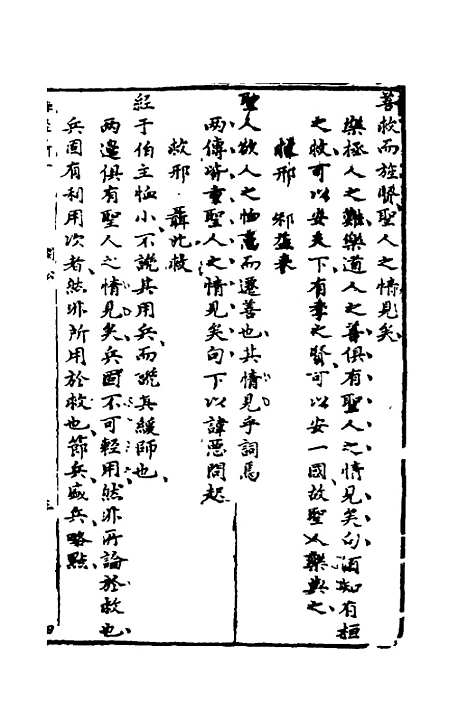 善救而旌賢聖人之情見矣
樂拯人之難樂道人之善俱有聖人之情見矣句須知有桓
之救可以安天下有季之賢可以安一國故聖人樂與之
救邢 邢遷
聖人欲人之恤舊而遷善也其情見乎詞焉
兩傳皆重聖人之情見矣句下以諱惡問起
救邢 聶北救
經于伯主恤小不説其用兵而説其緩師也
兩邊俱有聖人之情見矣兵固不可輕用然非所論於救也
兵固有利用次者然非所用於救也節兵盛兵略點